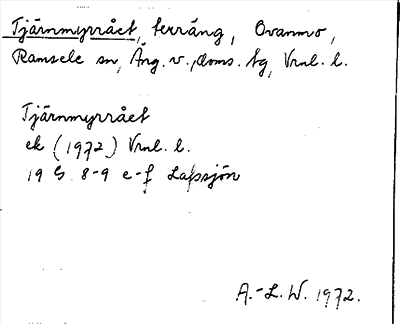 Tjärnmyrrået, terräng, Ovanmo,
Ramsele sn, Ång. v., doms. tg, Vrnl. l.
Tjärnmyrrået
ek (1972) Vrnl. l.
19 G 8-9 e-f Lafssjön
A.-L. W. 1972.